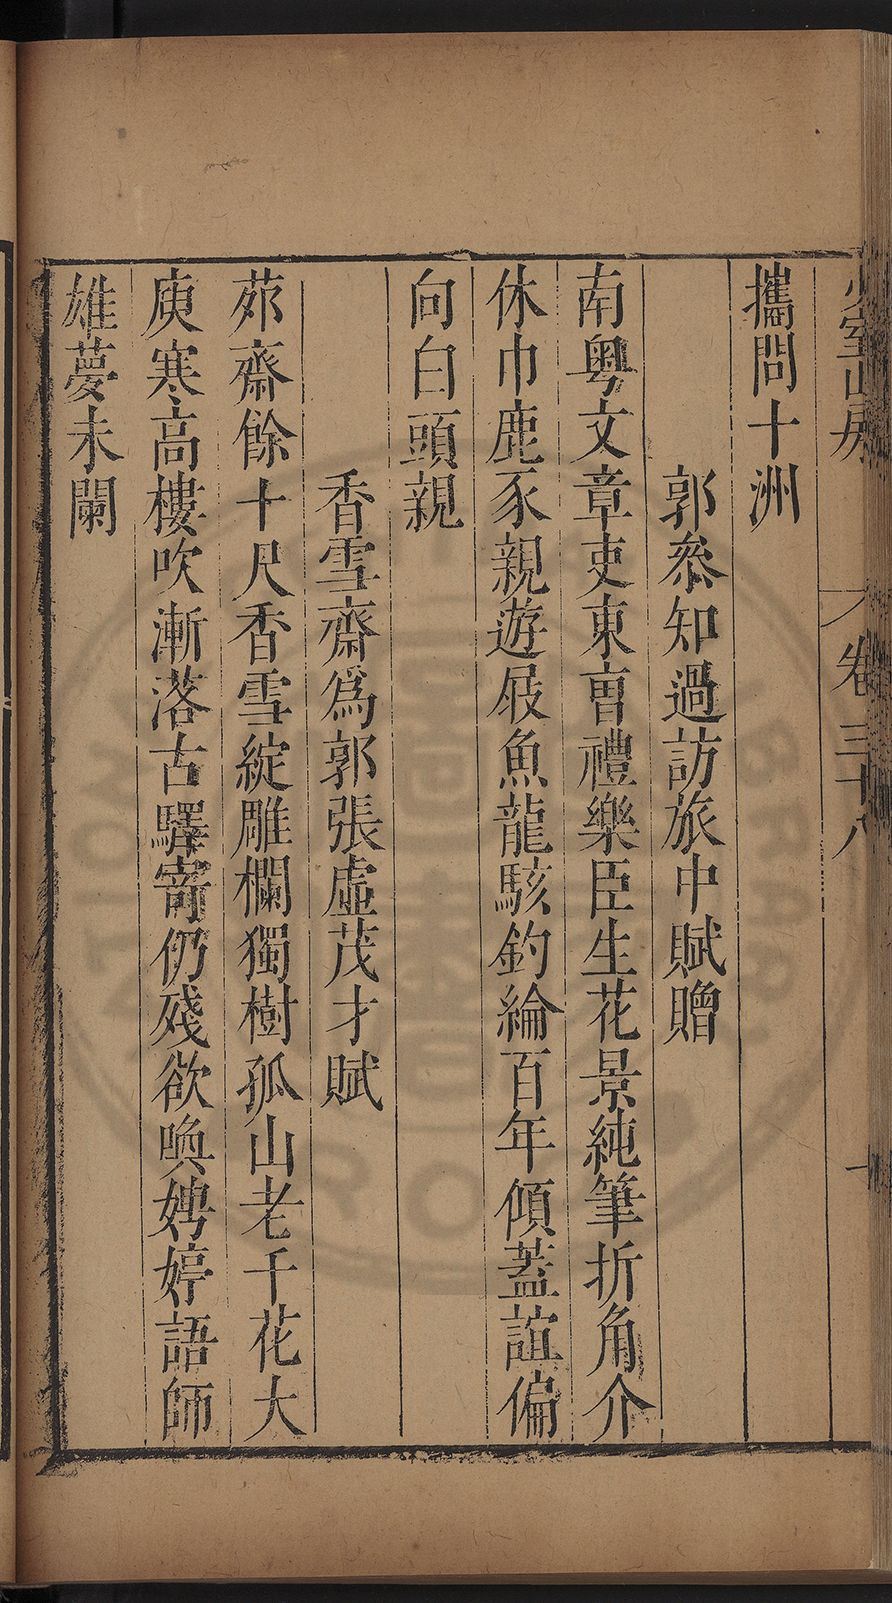 少室山房 卷三十八 十
攜問十洲
郭叅知過訪旅中賦贈
南粵文章吏東曺禮樂臣生花景純筆折角介
休巾鹿豕親遊屐魚龍駭釣綸百年傾蓋誼偏
向白頭親
香雪齋爲郭張虛茂才賦
茆齋餘十尺香雪綻雕欄獨樹孤山老千花大
庾寒高樓吹漸落古驛寄仍殘欲喚娉婷語師
雄夢未闌